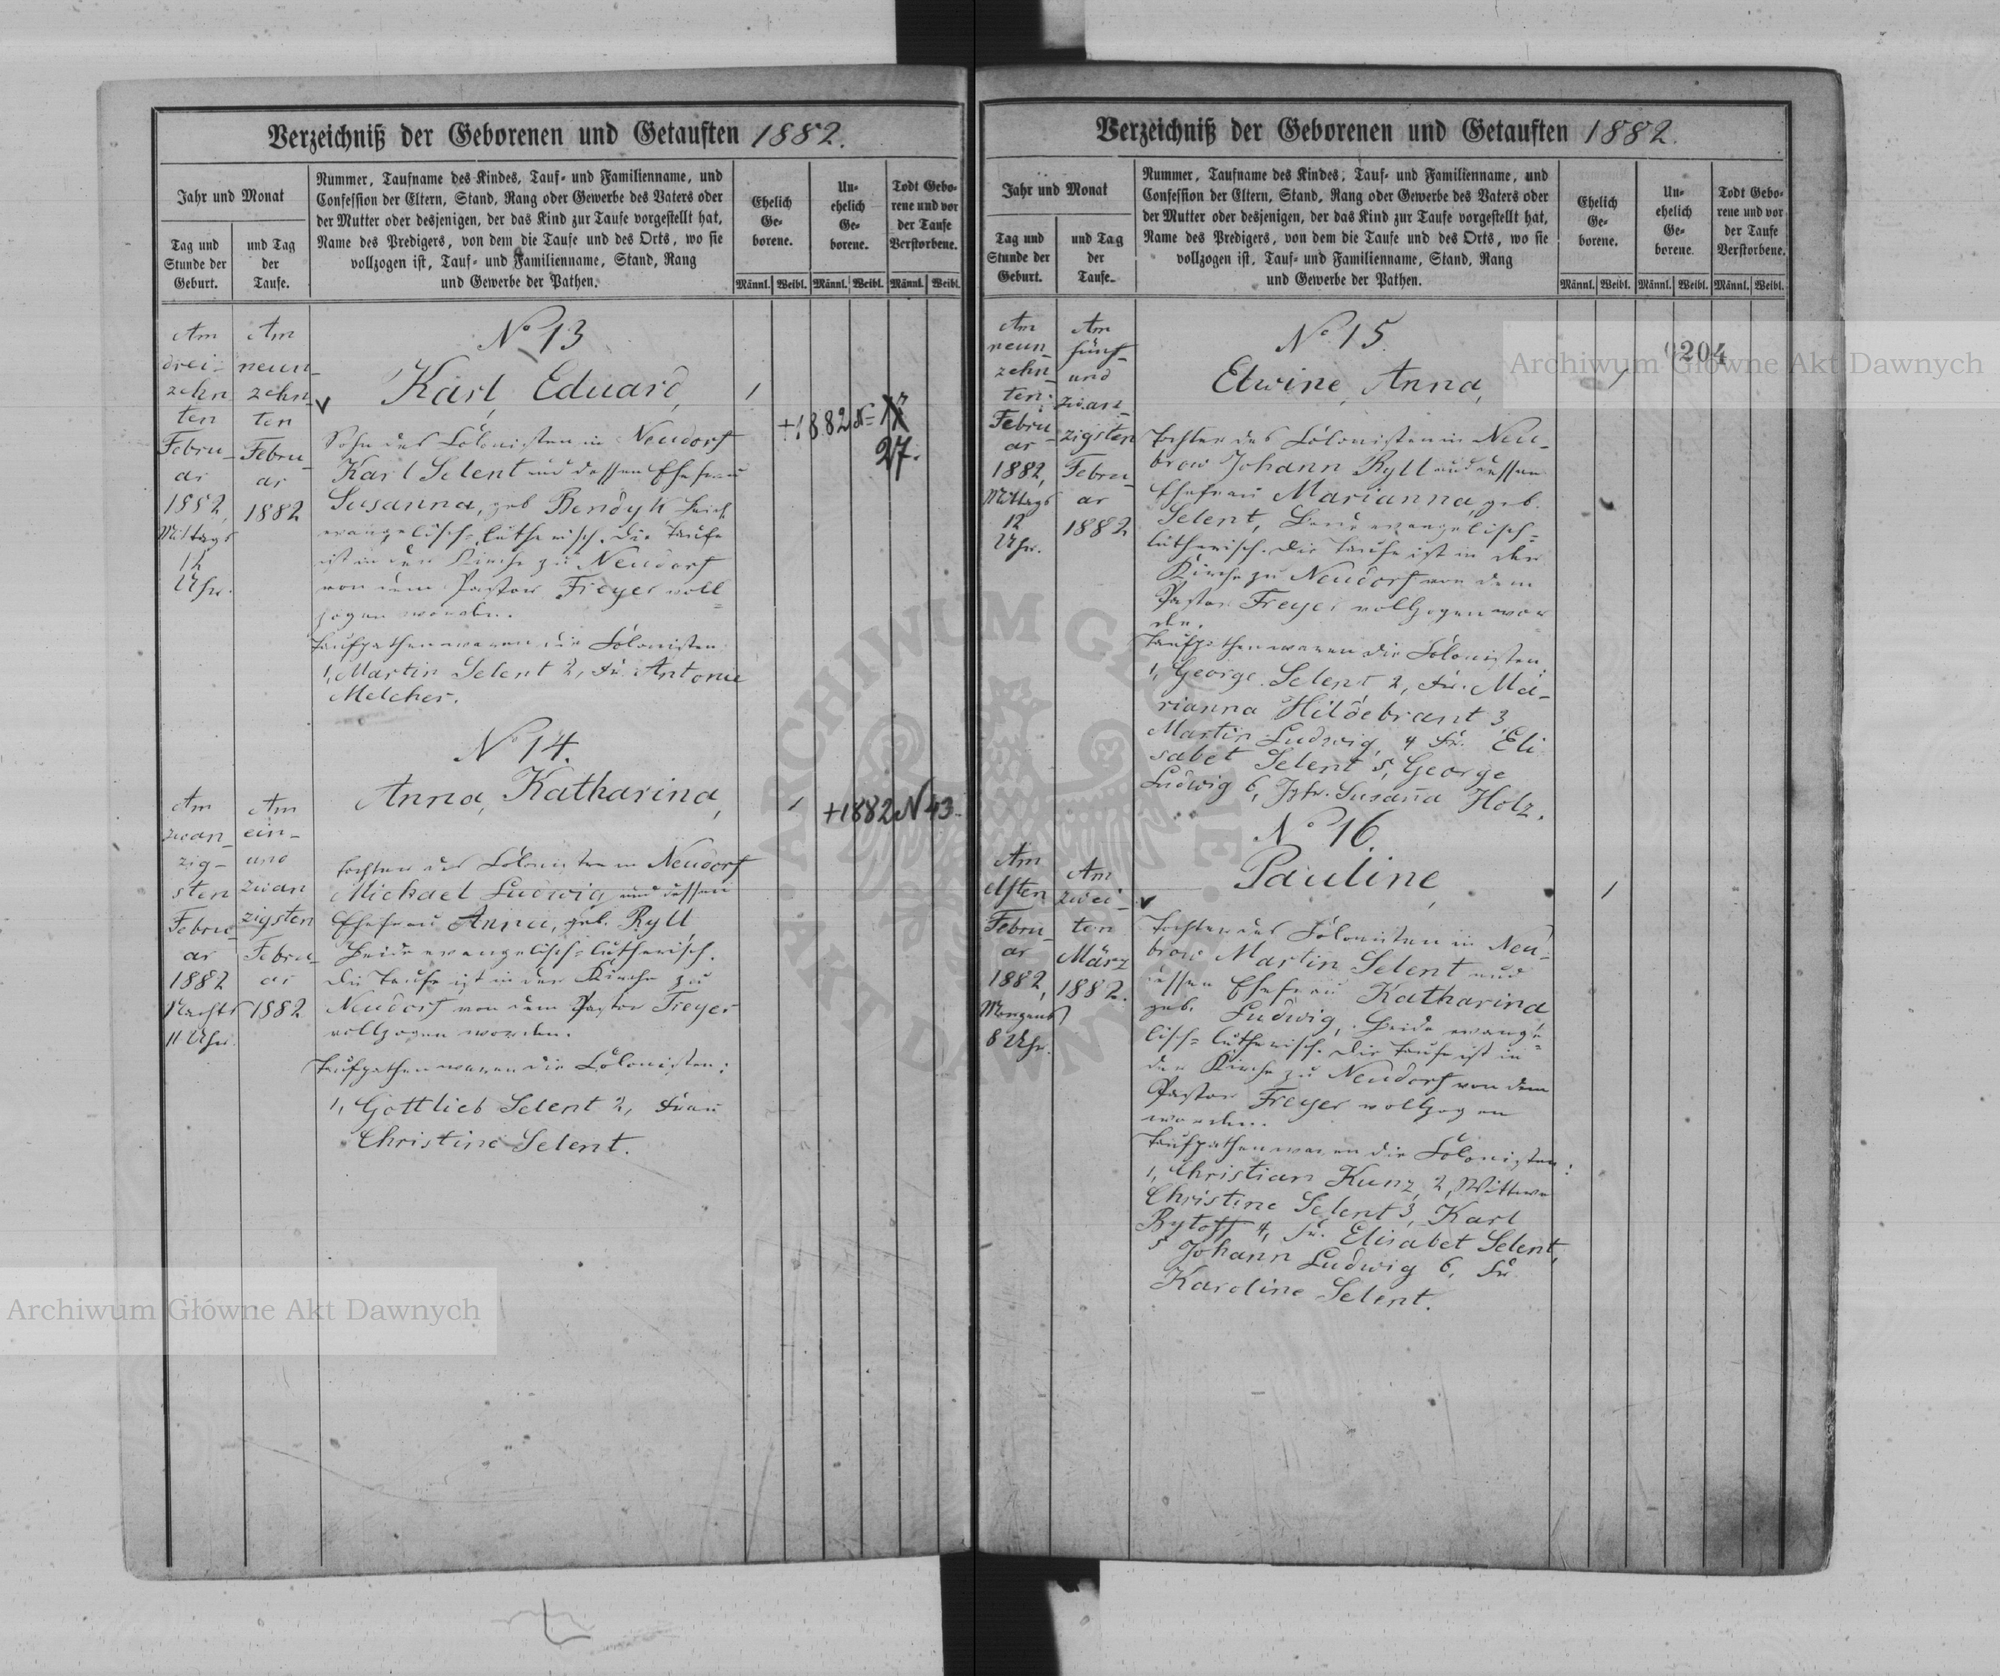 Verzeichniß der Geborenen und Getauften 1882.
Jahr und Monat
Tag und
Stunde der
Geburt.
und Tag
der
Taufe.
Nummer, Taufname des Kindes, Tauf- und Familienname, und
Confession der Eltern, Stand, Rang oder Gewerbe des Vaters oder
der Mutter oder desjenigen, der das Kind zur Taufe vorgestellt hat,
Name des Predigers, von dem die Taufe und des Orts, wo sie
vollzogen ist, Tauf- und Familienname, Stand, Rang
und Gewerbe der Pathen.
Ehelich
Ge-
borene.
Un-
ehelich
Ge-
borene.
Todt Gebo-
rene und vor
der Taufe
Verstorbene.
Männl. Weibl. Männl. Weibl. Männl. Weibl.
Am
drei-
zehn
ten
Febru-
ar
1882,
Mittags
12
Uhr.
Am
neun-
zehn-
ten
Febru-
ar
1882
No 13
Karl, Eduard,
Sohn des Colonisten in Neudorf
Karl Selent und dessen Ehefrau
Susanna, geb. Bendyk Beide
evangelisch-lutherisch. Die Taufe
ist in der Kirche zu Neudorf
von dem Pastor Freyer voll-
zogen worden.
Taufpathen waren die Colonisten:
1, Martin Selent 2, Fr. Antonie
Melcher.
1
+1882 N=
27.
Am
zwan-
zig-
sten
Febru-
ar
1882
Nachts
11 Uhr.
Am
ein-
und
zwan
zigsten
Febru-
ar
1882
No 14.
Anna, Katharina,
Tochter des Colonisten in Neudorf
Michael Ludwig und dessen
Ehefrau Anna, geb. Ryll,
Beide evangelisch-lutherisch.
Die Taufe ist in der Kirche zu
Neudorf von dem Pastor Freyer
vollzogen worden.
Taufpathen waren die Colonisten:
1, Gottlieb Selent 2, Frau
Christine Selent.
1
+1882 N 43.
Verzeichniß der Geborenen und Getauften 1882.
Jahr und Monat
Tag und
Stunde der
Geburt.
und Tag
der
Taufe.
Nummer, Taufname des Kindes, Tauf- und Familienname, und
Confession der Eltern, Stand, Rang oder Gewerbe des Vaters oder
der Mutter oder desjenigen, der das Kind zur Taufe vorgestellt hat,
Name des Predigers, von dem die Taufe und des Orts, wo sie
vollzogen ist, Tauf- und Familienname, Stand, Rang
und Gewerbe der Pathen.
Ehelich
Ge-
borene.
Un-
ehelich
Ge-
borene.
Todt Gebo-
rene und vor
der Taufe
Verstorbene.
Männl. Weibl. Männl. Weibl. Männl. Weibl.
204
Am
neun-
zehn-
ten
Febru-
ar
1882,
Mittags
12
Uhr.
Am
fünf-
und
zwan-
zigsten
Febru-
ar
1882
No 15.
Edwine, Anna,
Tochter des Colonisten in Neu-
brow Johann Ryll und dessen
Ehefrau Marianna, geb.
Selent, Beide evangelisch-
lutherisch. Die Taufe ist in der
Kirche zu Neudorf von dem
Pastor Freyer vollzogen wor
den.
Taufpathen waren die Colonisten:
1, George Selent 2, Fr. Ma-
rianna Hildebrant 3,
Martin Ludwig, 4 Fr. Eli
sabet Selent 5, George
Ludwig 6, Jgfr. Susanna Holz.
1
Am
elften
Febru-
ar
1882,
Morgens
8 Uhr.
Am
zwei-
ten
März
1882.
No 16.
Pauline,
Tochter des Colonisten in Neu-
brow Martin Selent und
dessen Ehefrau Katharina
geb. Ludwig, Beide evange-
lisch-lutherisch. Die Taufe ist in
der Kirche zu Neudorf von dem
Pastor Freyer vollzogen
worden.
Taufpathen waren die Colonisten:
1, Christian Kunz, 2, Wittwe
Christine Selent 3, Karl
Rytoff 4, Fr. Elisabet Selent,
5 Johann Ludwig 6, Fr.
Karoline Selent.
1
Archiwum Główne Akt Dawnych
Archiwum Główne Akt Dawnych
ARCHIWUM GŁÓWNE
AKT DAWNYCH